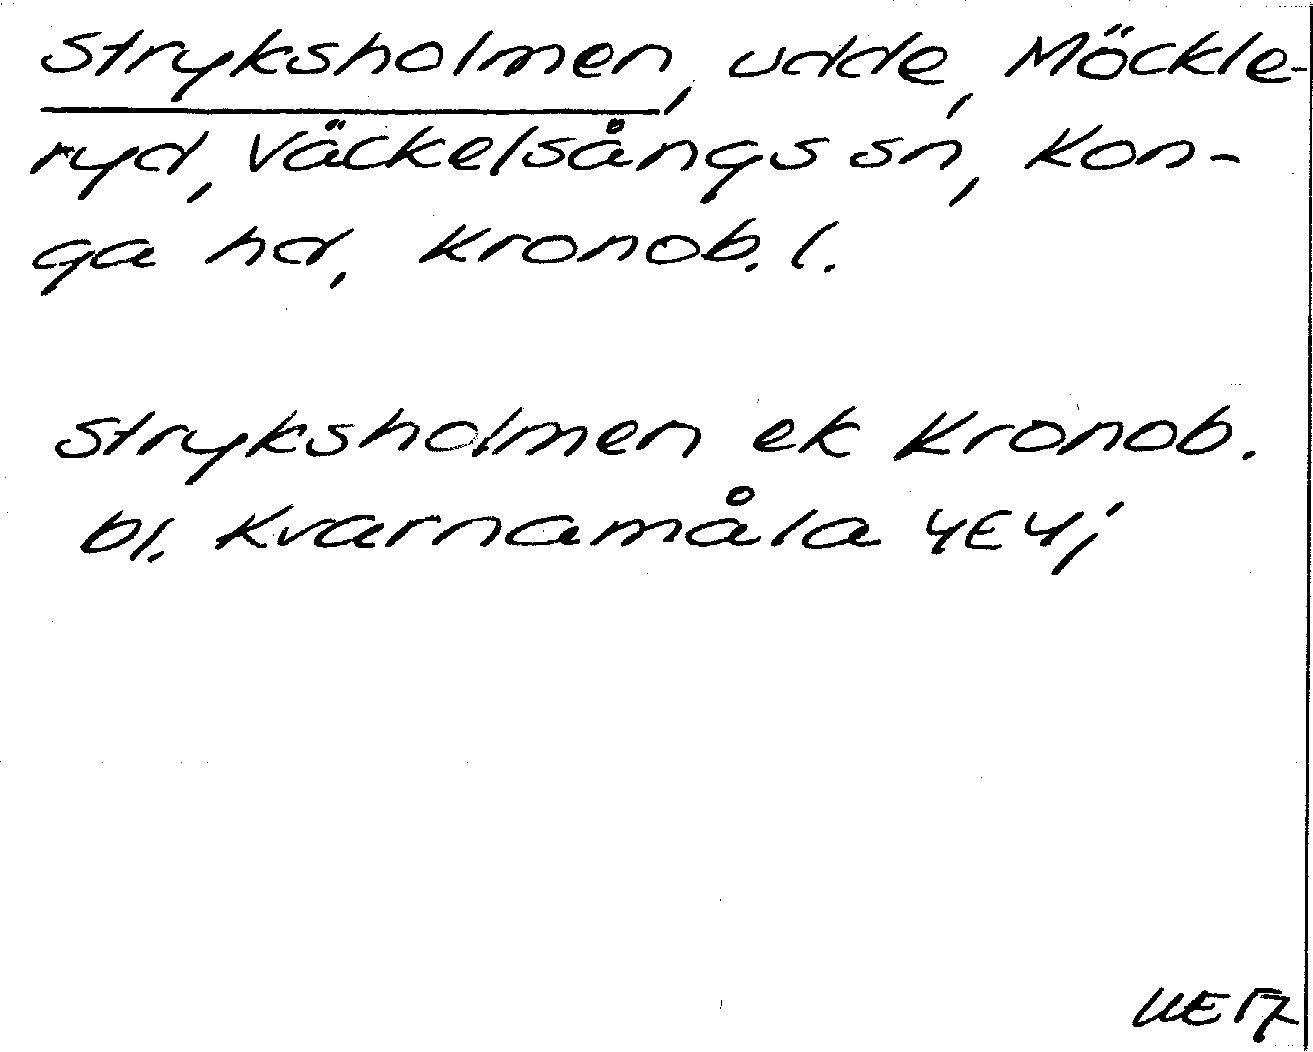 Stryksholmen, udde, Möckle-
ryd, Väckelsångs sn, Kon-
ga hd, Kronob. l.
Stryksholmen ek Kronob.
bl. Kvarnamåla 4E4;